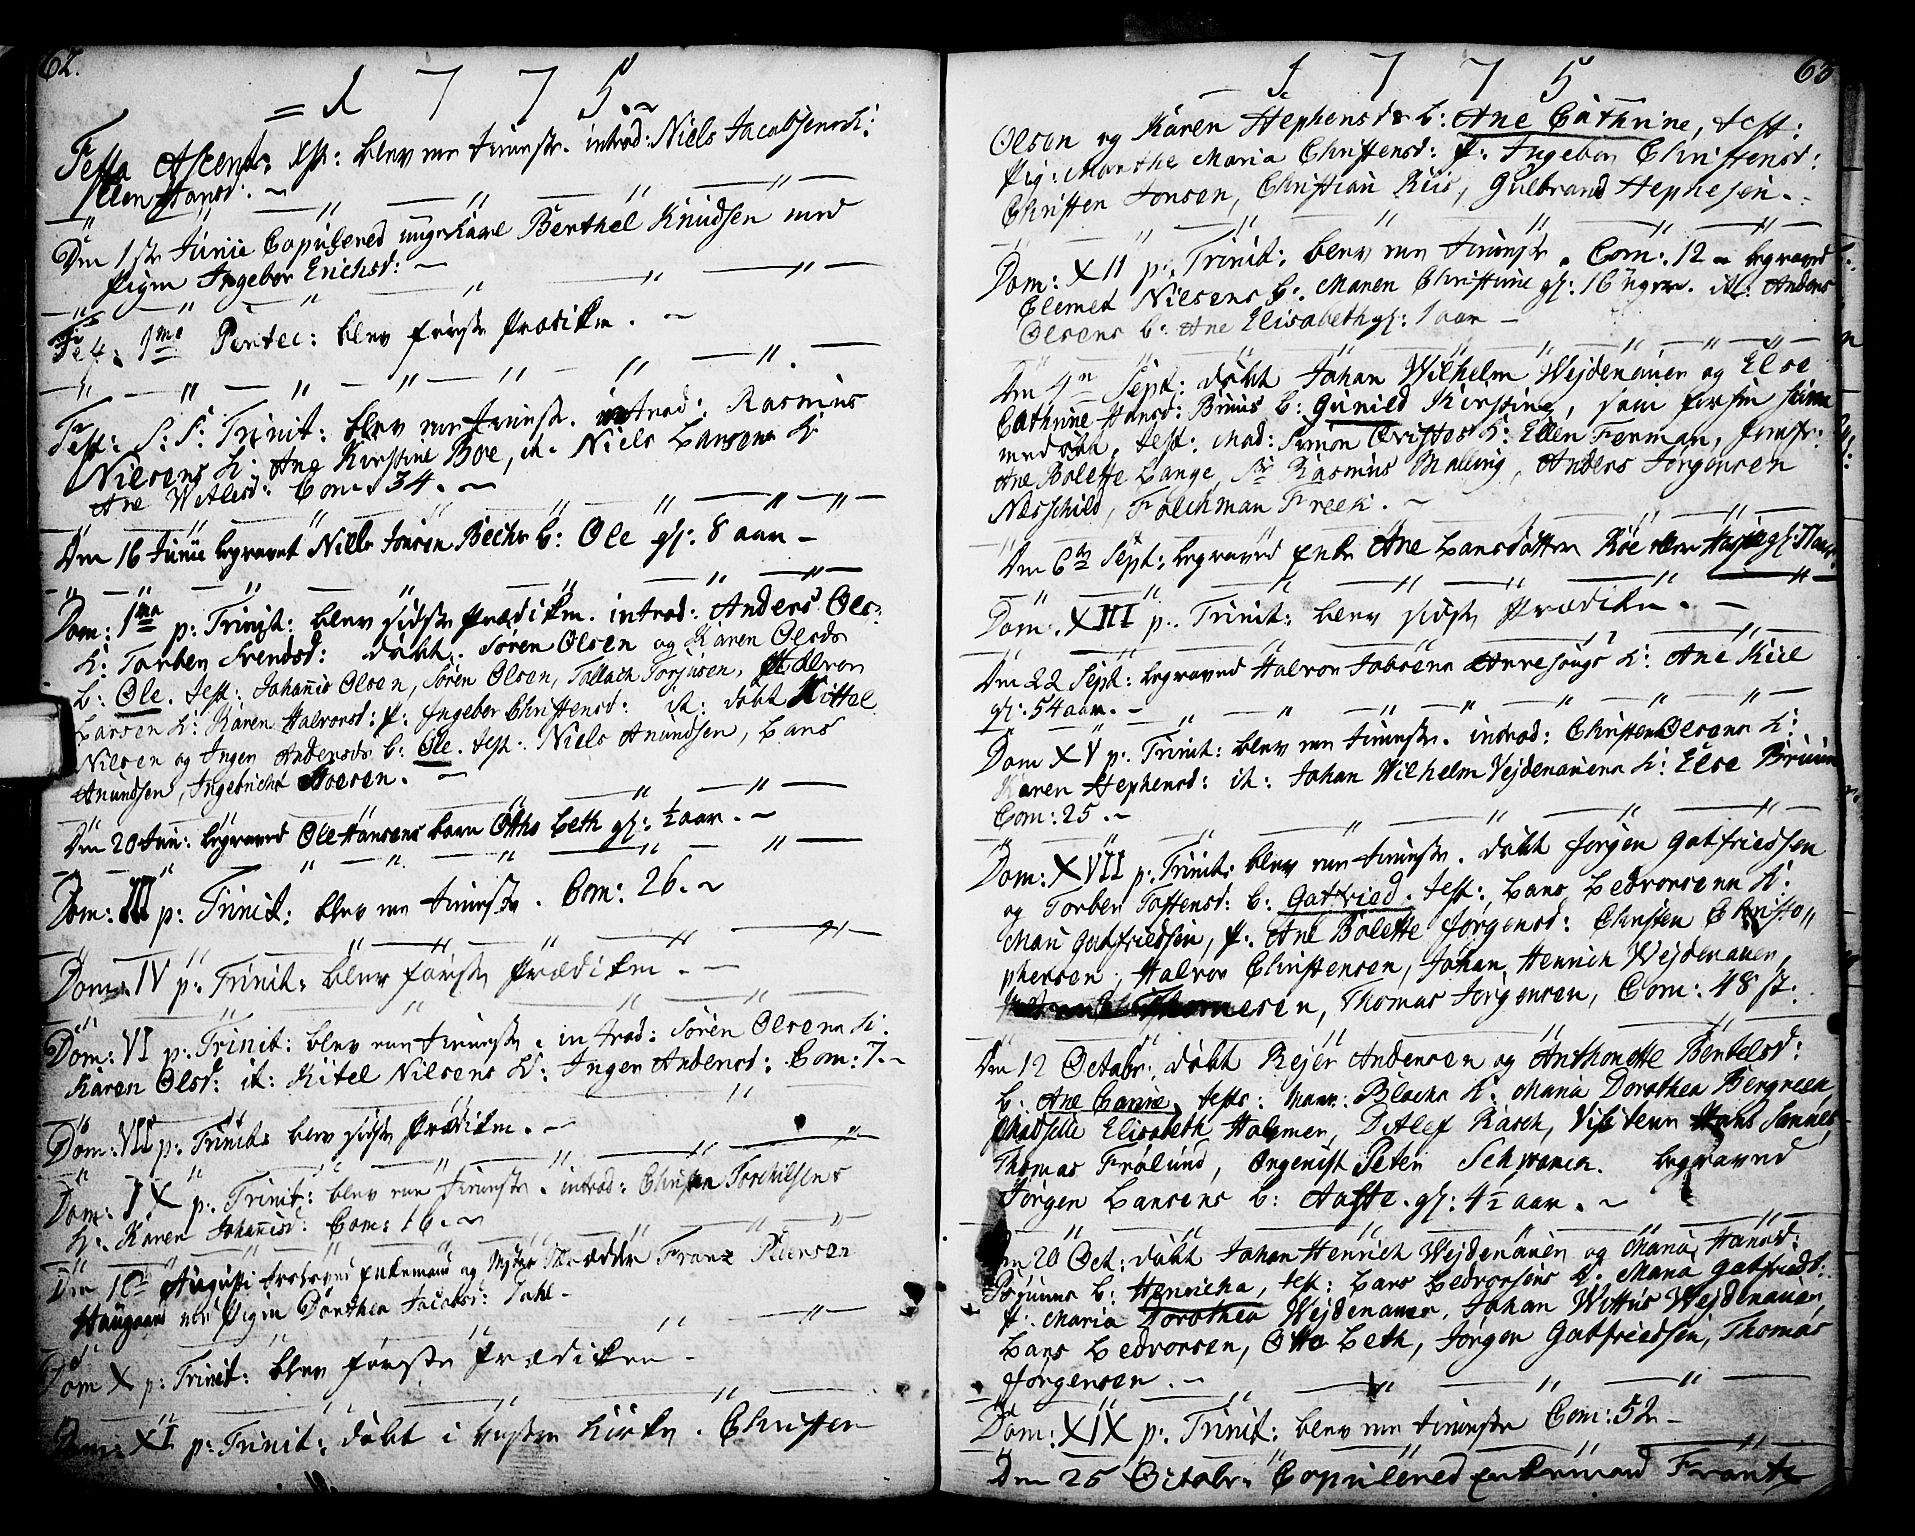 62.
= 1 7 7 5. ~
Festo Ascens: Xsti: blev en tienneste. introd: Niels Jacobsens K:
Ellen Hansd: ~
Den 1ste Junie Copulered ungekarl Berthel Knudsen med
Pigen Ingebor Erichsd: ~
Fest: 1mo Pentec: blev første Prædiken. ~
Fest: S: S: Trinit: blev en tienneste. introd: Rasmus
Nilsens K: Ane Kirstine Boe, it. Niels Larsens K:
Ane Wetlesd: Com: 34. ~
Den 16 Junie begravet Niels Jonsen Bechs b: Ole gl: 8 aar ~
Dom: 1ma p: Trinit: blev sidste Prædiken. introd: Anders Ols:
K: Torber Svendsd: døbt. Søren Olsen og Karen Olsds
b: Ole. test: Johanis Olsen, Søren Olsen, Tallach Torjusen, Halvor
Larsens K: Karen Halvorsd: P: Ingebor Christensd: it: døbt Kittel
Nilsen og Inger Andersds b: Ole. test: Niels Anundsen, Lars
Anundsen, Ingebricht Hoesen. ~
Den 20 Jun: begraved Ole Hansens barn Otho Leth gl: ½ aar. ~
Dom: III p: Trinit: blev en tienneste. Com: 26. ~
Dom: IV p: Trinit: blev første Prædiken. ~
Dom: VI p: Trinit: blev en tienneste. introd: Søren Olsens K:
Karen Olsd: it: Kitel Nilsens K: Inger Andersd: Com: 7. ~
Dom: VII p: Trinit: blev sidste Prædiken. ~
Dom: IX p: Trinit: blev en tienneste. introd: Christen Torchilsens
K: Karen Johanisd: Com: 16. ~
Den 10de Augusti trolovet Enkemand og Mester Skrædder Franz
Haugaard med Pigen Dorthea Jacobsd: Dahl. ~
Dom X p: Trinit: blev første Prædiken ~
Dom: XI p: Trinit: døbt i Vestre Kirke. Christen
63
1 7 7 5
Olsen og Karen Stephensds b: Ane Cathrine, test:
Pig: Marthe Maria Christensd: P: Ingebor Christensd:
Christen Jonsen, Christian Riis, Gulbrand Stephesen. ~
Dom: XII p: Trinit: blev en tienneste. Com: 12 ~ begraved
Clemet Nilsens b: Maren Christine gl: 16 uger. it: Anders
Olsens b: Ane Elisabeth gl: 1 aar ~
Den 4n Sept: døbt Johan Wilhelm Wejdenauer og Else
Cathrine Hansd: Bruus b: Gunild Kirstine, som forhen hiemme
med døbt, test: Mad: Simon K: Ellen Ferman, Jomfr:
Ane Bolette Lange, Sr Rasmus Malling, Anders Jørgensen
Næsschild, Folchman Freek. ~
Den 6te Sept: begraved Enke Ane Larsdatter Roe
Dom: XIII p: Trinit: blev sidste Prædiken. ~
Den 22 Sept: begraved Halvor Jabsens K: Ane Kiil
gl: 54 aar. ~
Dom XV p: Trinit: blev en tienneste. introd: Christen Olsens K:
Karen Stephensd: it: Johan Wilhelm Vejdenauers K: Else Bruun
Com: 25. ~
Dom: XVII p: Trinit: blev en tienneste. døbt Jørgen Gotfriedsen
og Torber Tostensd: b: Gotfried. test: Lars Ledvorsens K:
Mari Gotfriedsen, P: Ane Bolette Jørgensd: Christen Christo"
phersen, Halvor Christensen, Johan Henrich Wejdenauer,
Thomas Jørgensen, Com: 48 st.
Den 12 Octobr: døbt Rejer Andersen og Anthonette Bentelsd:
b: Ane Carine, test: Blachs K: Maria Dorothea Bergreen
Madselle Elisabeth Holmen, Ditlef Rasch, Visiteur Hans Samuels
Thomas Frølund, Orgenist Peter Schwanch. begraved
Jørgen Larsens b: Aaste. gl: 4½ aar. ~
Den 20 Oct: døbt Johan Henrich Wejdenauer og Maria Hansd:
b: Henricha, test: Lars Ledvorsens K: Maria Gotfriedsd:
P: Maria Dorothea Wejdenauer, Johan Wittus Wejdenauer,
Lars Ledvorsen, Otto Leth, Jørgen Gotfriedsen, Thomas
Jørgensen. ~
Dom: XIX p: Trinit: blev en tienneste Com: 52 ~
Den 25 Octobr: Copulered Enkemand Frantz